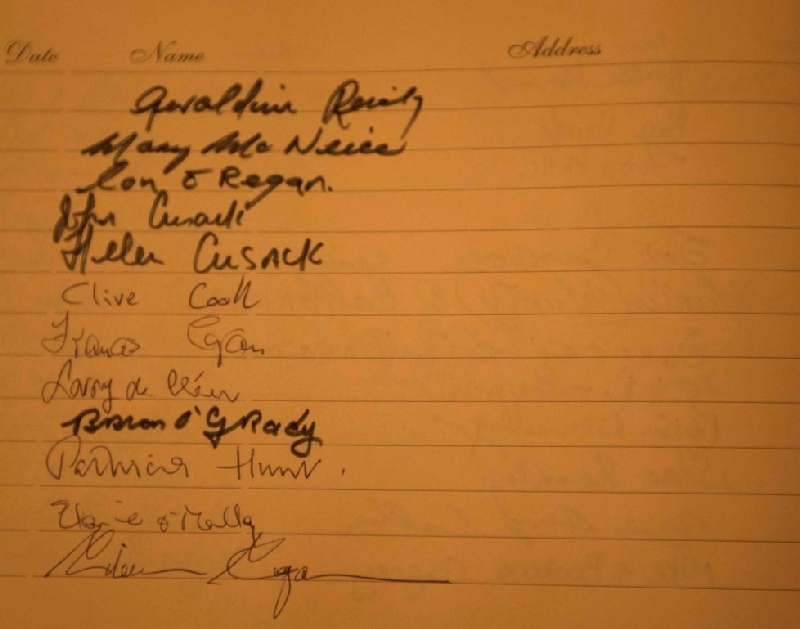 Date Name Address
Geraldine Reilly
Mary Mc Neice
Con O Regan.
John Cusack
Helen Cusack
Clive Cook
Frances Egan
Larry de Cléir
Brian O'Grady
Patricia Hunt.
Elaine O'Malley
Eileen Egan